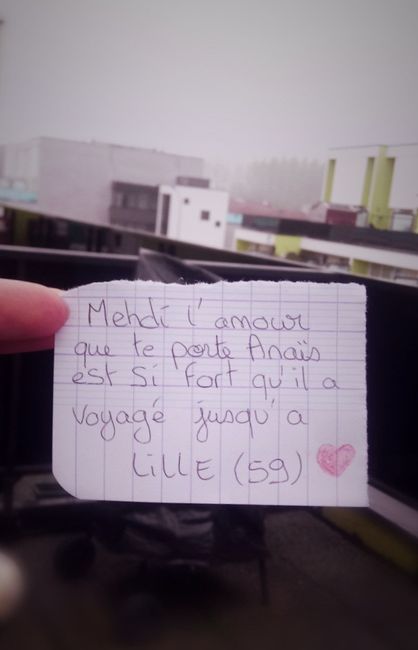 Mehdi l'amour
que te porte Anaïs
est si fort qu'il a
voyagé jusqu'a
LILLE (59)